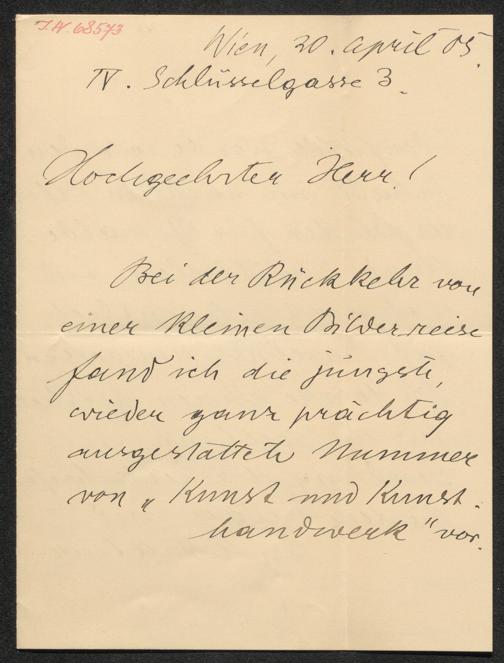 J.N. 68573
Wien, 20. April 05.
IV. Schlüsselgasse 3.
Hochgeehrter Herr!
Bei der Rückkehr von
einer kleinen Bilderreise
fand ich die jüngste,
wieder ganz prächtig
ausgestattete Nummer
von „Kunst und Kunst-
handwerk" vor.